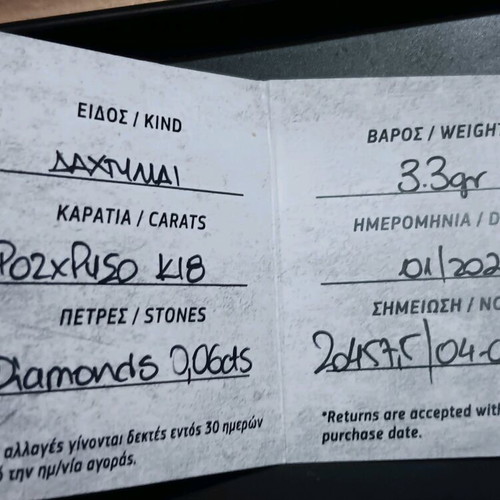 ΕΙΔΟΣ / KIND
ΔΑΧΤΥΛΙΔΙ
ΚΑΡΑΤΙΑ / CARATS
ΡΟΖxΡυSO K18
ΠΕΤΡΕΣ / STONES
Diamonds 0,06cts
αλλαγές γίνονται δεκτές εντός 30 ημερών
την ημ/νία αγοράς.
ΒΑΡΟΣ / WEIGHT
3.3gr
ΗΜΕΡΟΜΗΝΙΑ / D
01/202
ΣΗΜΕΙΩΣΗ / NO
20457,5/04-0
*Returns are accepted with
purchase date.